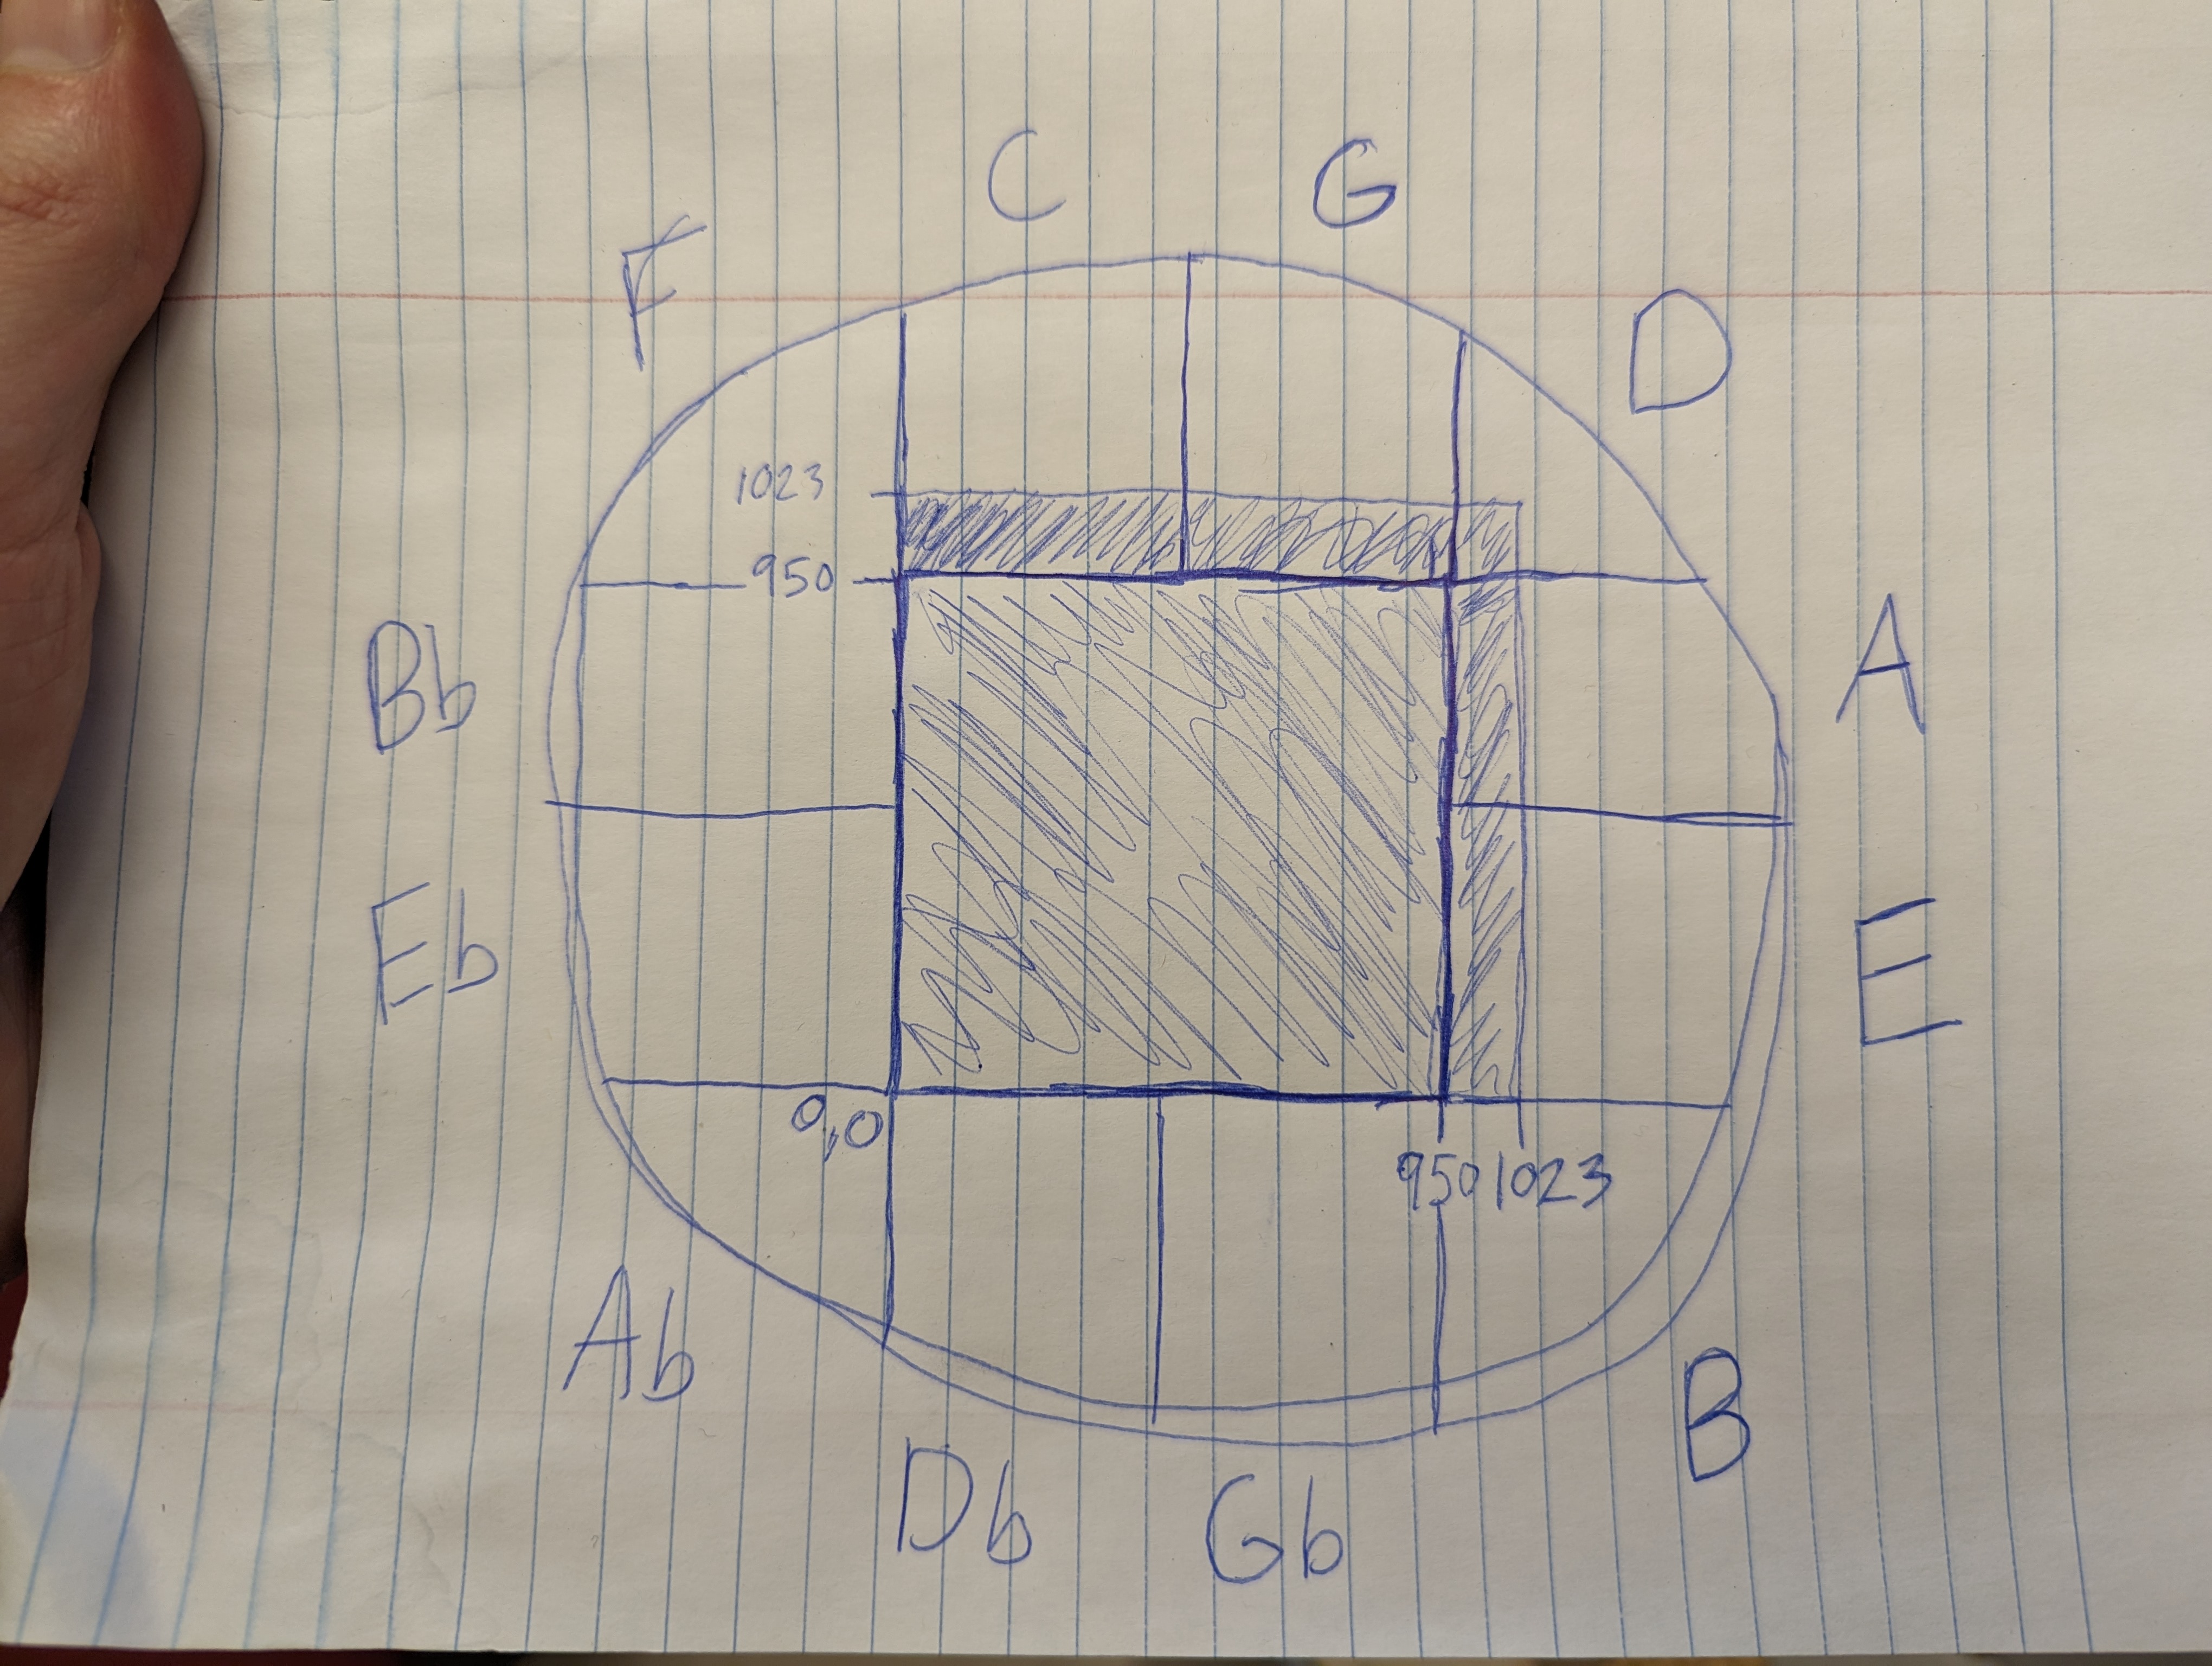 C G
F
D
1023
950
Bb
A
Eb
E
0,0
950 1023
Ab
B
Db Gb